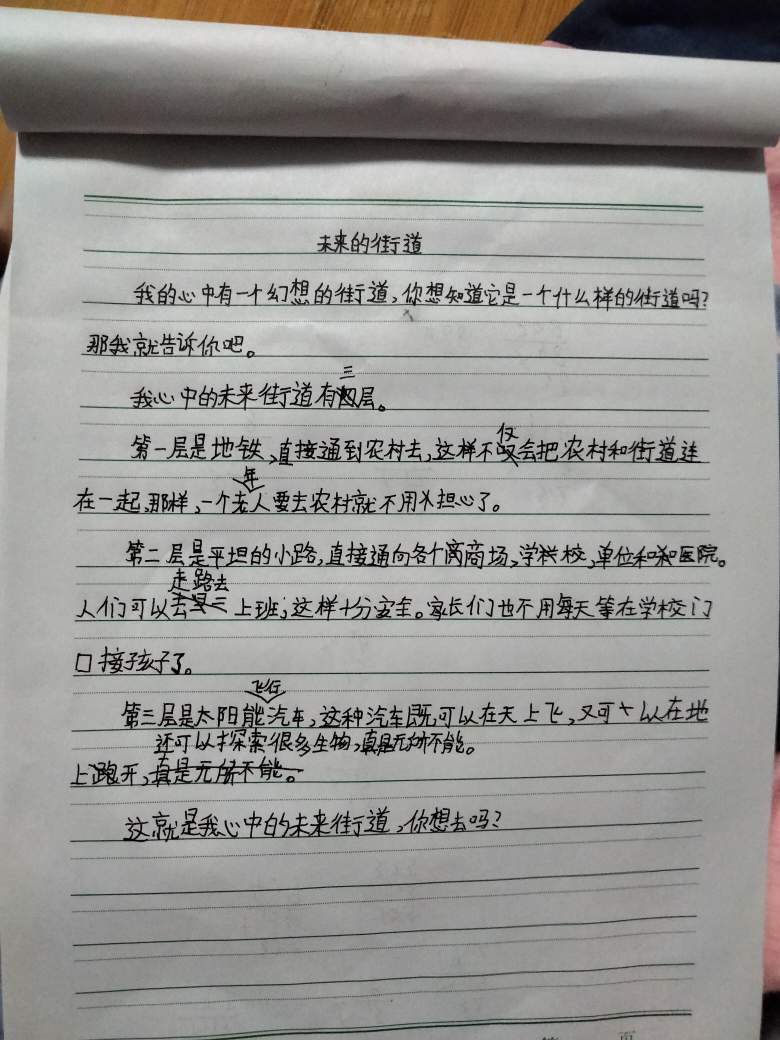 未来的街道
我的心中有一个幻想的街道，你想知道它是一个什么样的街道吗？
那我就告诉你吧。
三
我心中的未来街道有层。
仅
第一层是地铁，直接通到农村去，这样不会把农村和街道连
年
在一起，那样，一个老人要去农村就不用担心了。
第二层是平坦的小路，直接通向各个商场，学校，单位和医院。
走路去
人们可以上班，这样十分安全。家长们也不用每天等在学校门
口接孩子了。
飞行
第三层是太阳能汽车，这种汽车既可以在天上飞，又可以在地
还可以探索很多生物，真是无所不能。
上跑开，真是无所不能。
这就是我心中的未来街道，你想去吗？